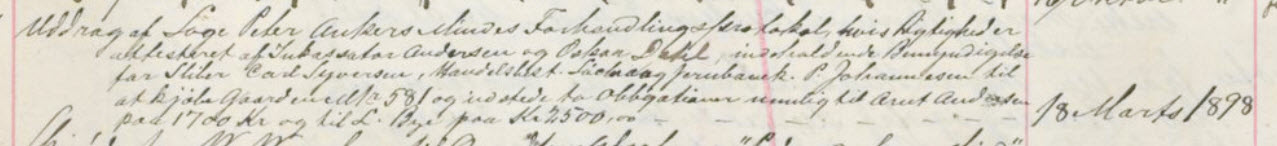 Uddrag af Loge Peter Ankers Mindes Forhandlingsprotokol, hvis Rigtighed er
attesteret af Inkassator Andersen og Oskar Dahl, indeholdende Bemyndigelse
for Sliber Carl Syversen, Handelsbest. og Jernbanek. P. Johannesen til
at kjøbe Gaarden Matr 581 og udstede to Obligationer nemlig til Arnt Andersen
paa 1700 Kr og til L. Bye paa Kr 2500,00 — 18 Marts 1898